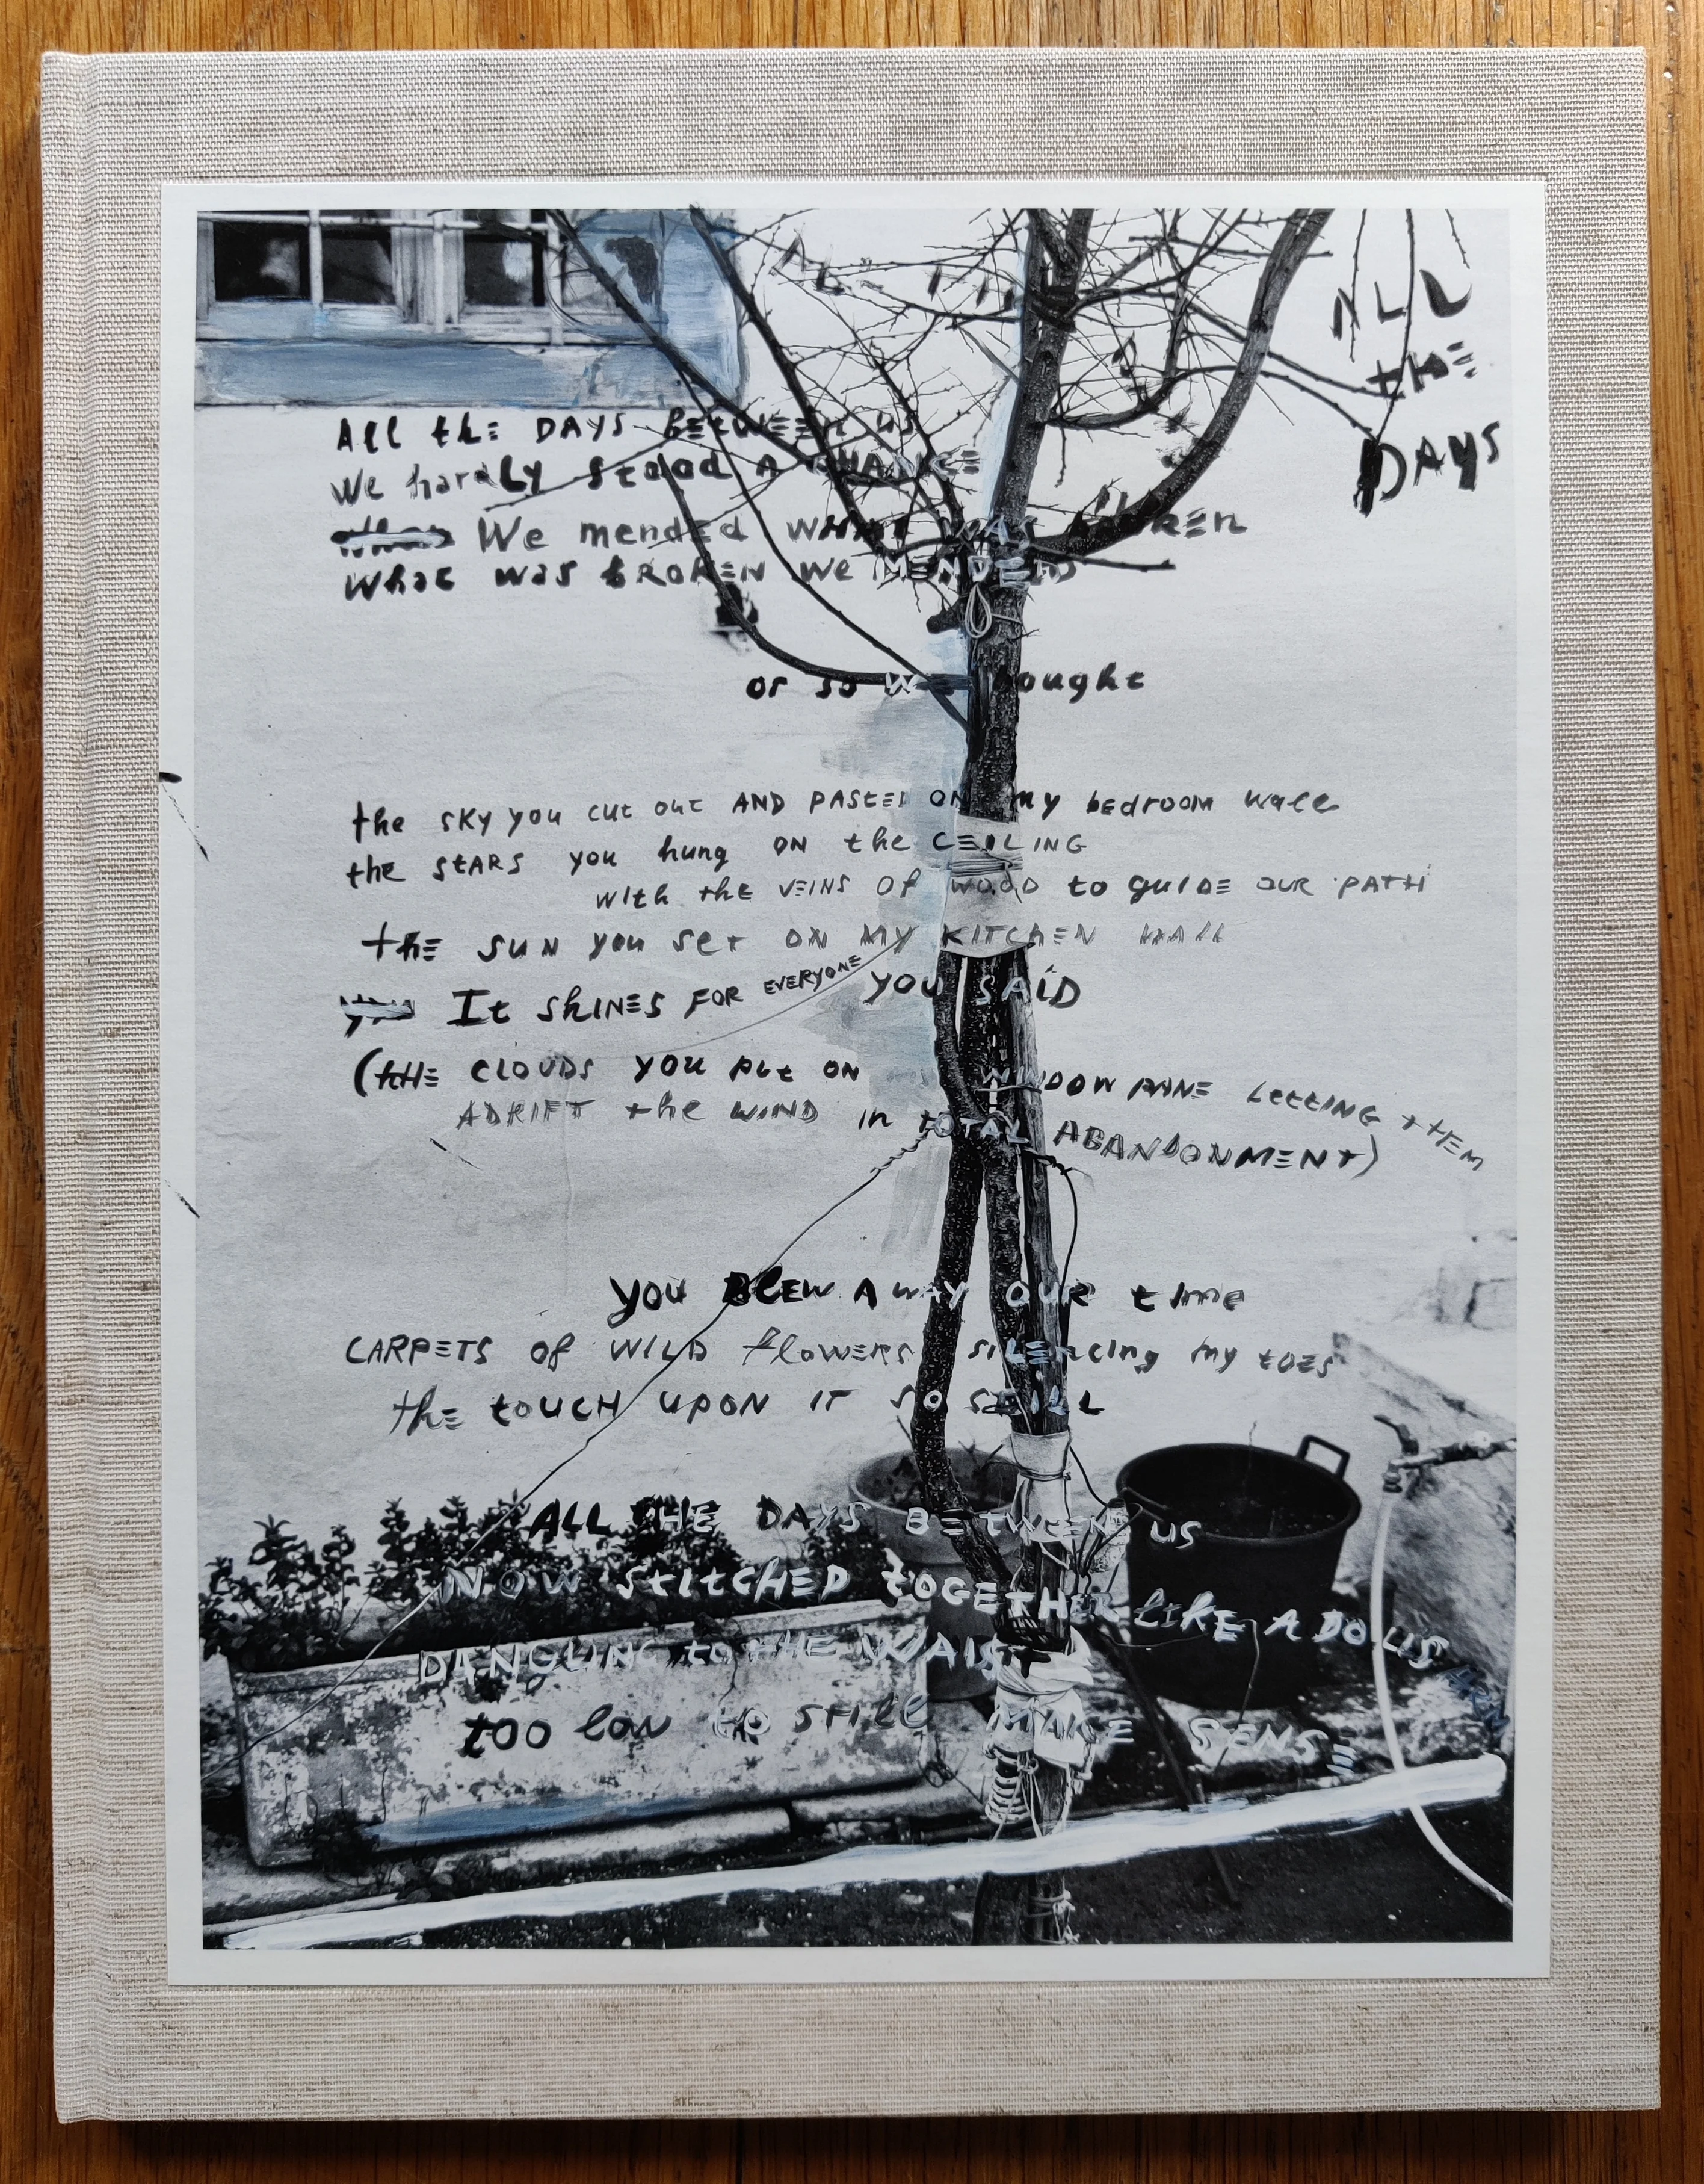 ALL
the
DAYS
All the DAYS between us
We hardly stood A CHANCE
We mended what was BROKEN
What was bROKEN we MENDED
or so w ought
the sky you cut out AND PASTED ON my bedroom wall
the stARS you hung ON the CEILING
with the VEINS Of WOOD to guide OUR PATH
the sun you set ON MY KITCHEN WALL
It shINES FOR EVERYONE YOU SAiD
(the CLOUDS you put ON WINDOW PANE LETTING tHEM
ADRIFT the WIND in tOTAL ABANDONMENT)
you BLEW AwAY OUR time
CARPETS of WILD flowERS silencing my toes
the touCH UPON IT SO STILL
ALL tHE DAYS BEtWEEN US
NOW StItCHED tOGEtHER LIKE A DO
DANGLING to tHE WAIST
too low to still MAKE SENSE